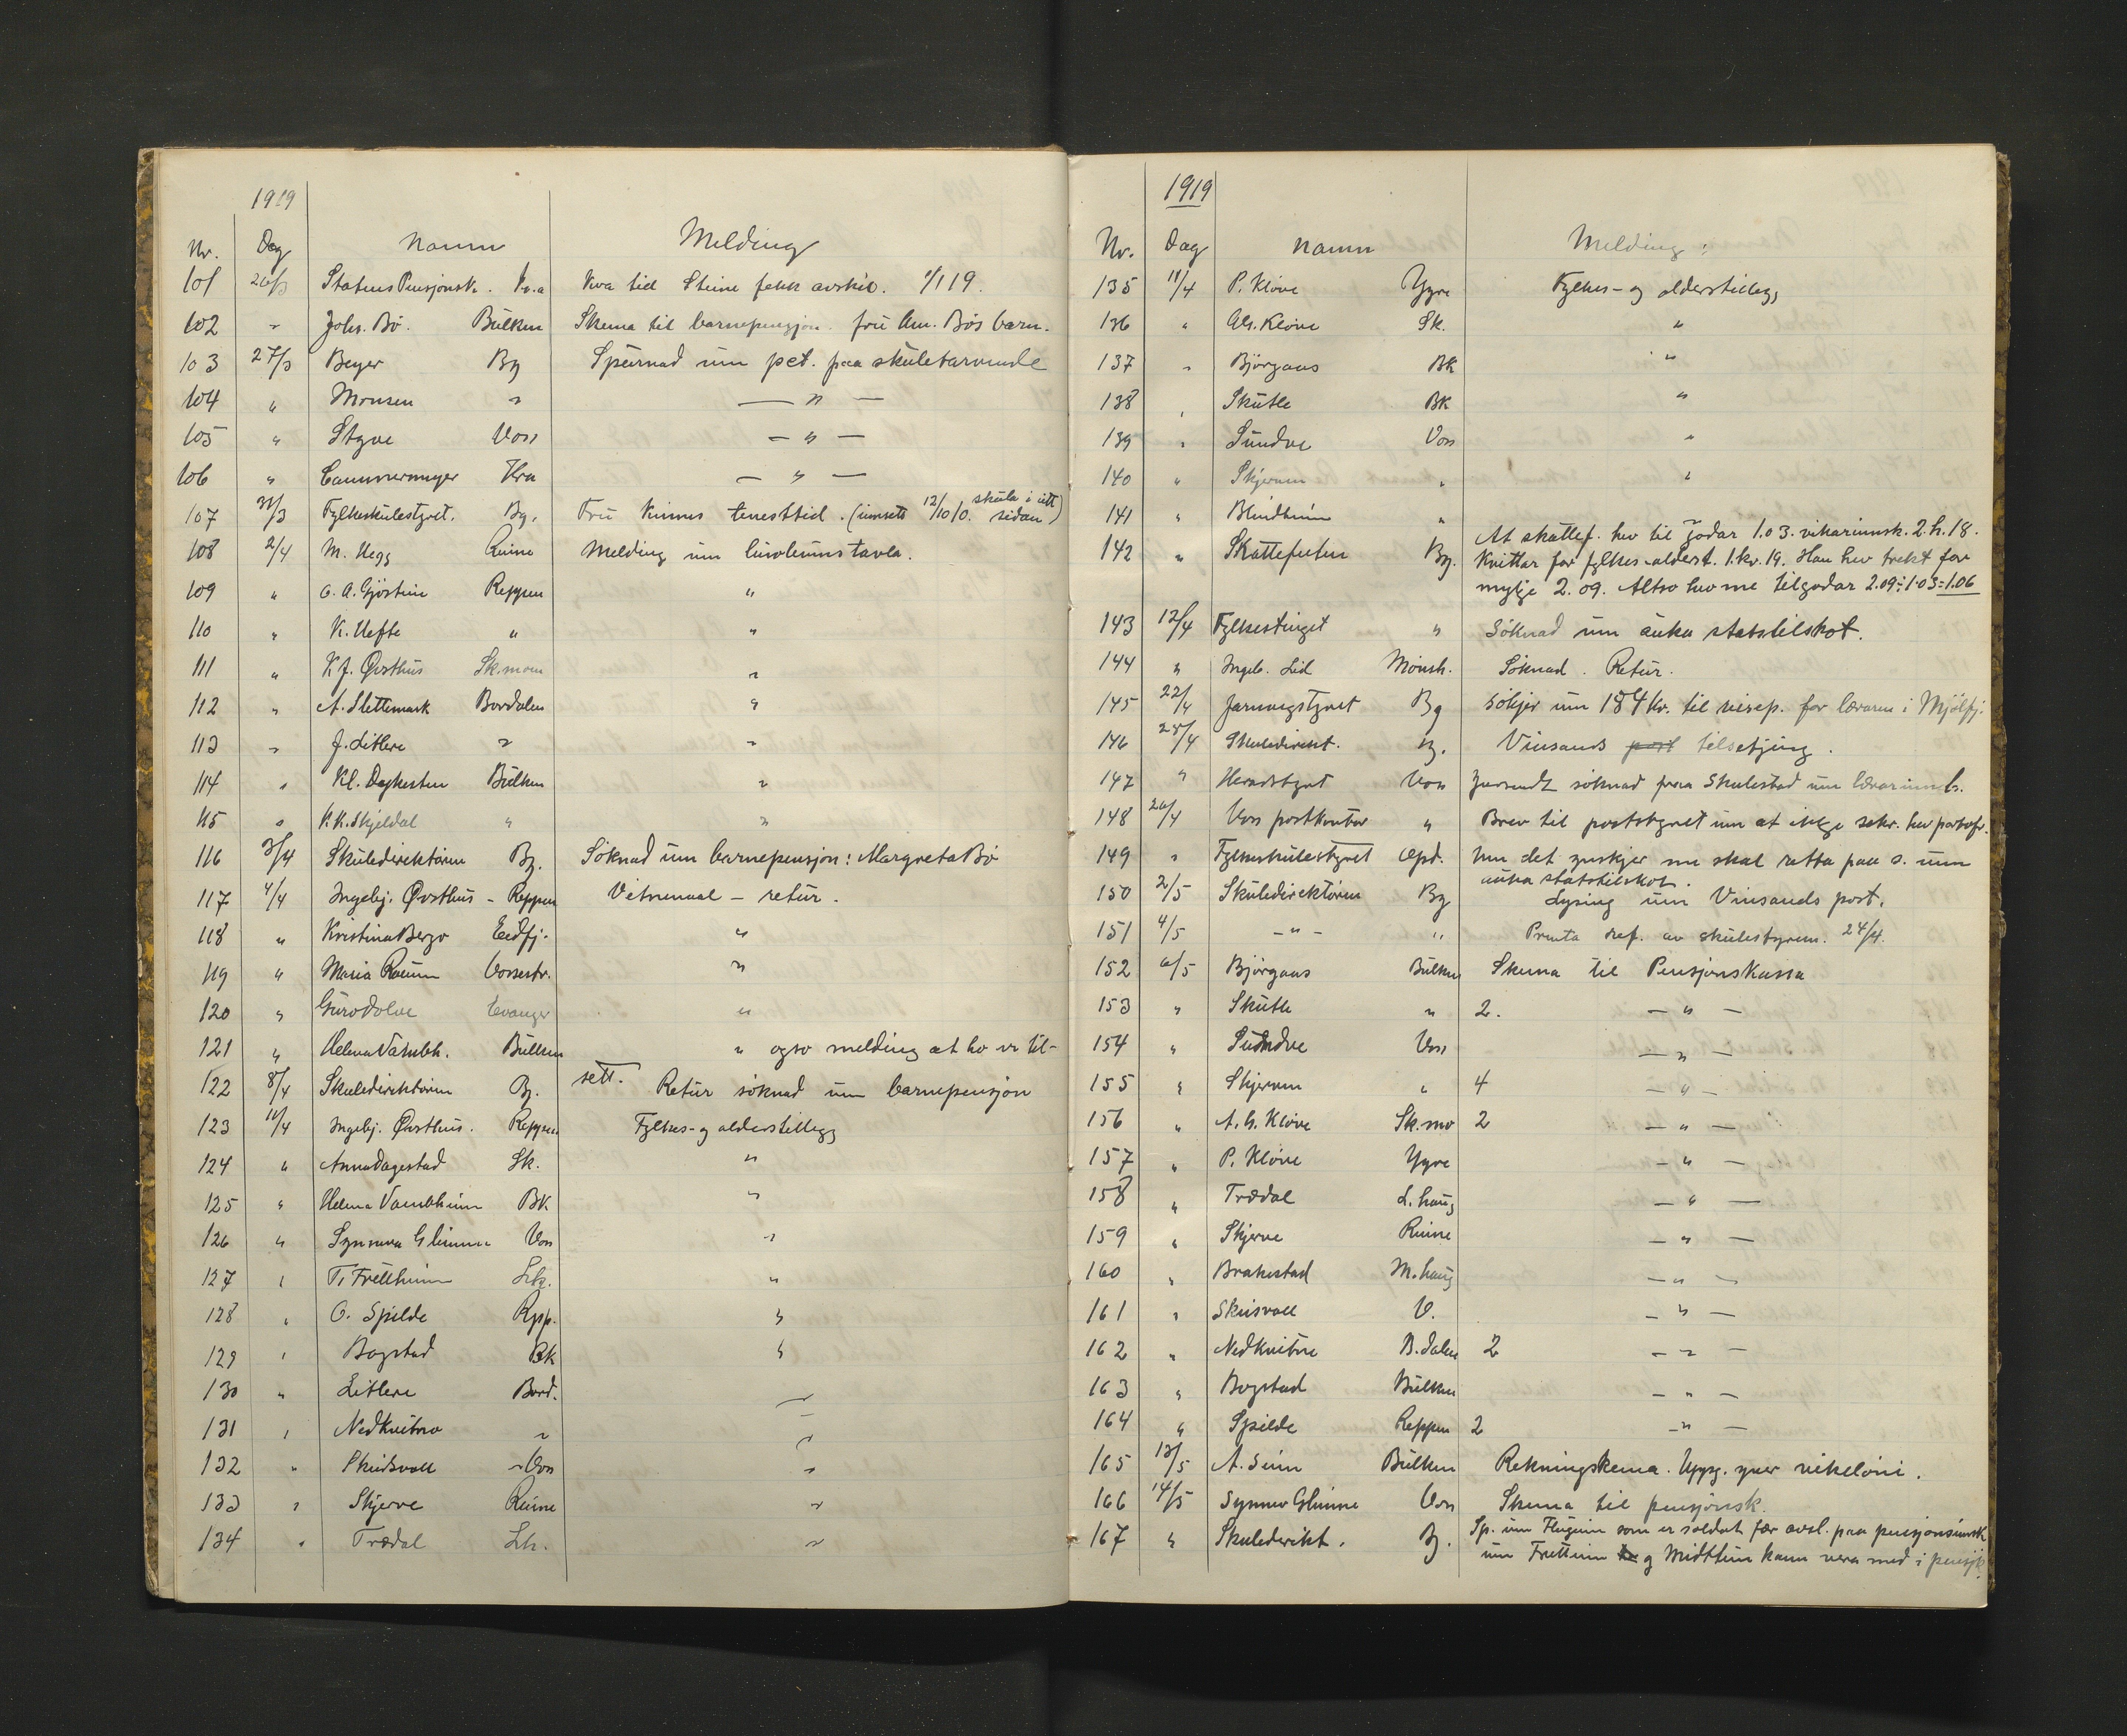 1919
Nr. Dag Namn Melding
101 26/3 Statens Pensjonsk. Kr.a Kva tid Steine fekk avskil. 1/1 19.
102 " Johs. Bø. Bulken Skema til barnepensjon. fru An. Bøs barn.
103 27/3 Beyer Bg Spurnad um pct. paa skuletarvende
104 " Monsen " — " —
105 " Styve Voss — " —
106 " Cammermeyer Kra — " —
107 31/3 Fylkeskulestyret. Bg. Fru Kinnes tenesttid. (umsett 12/10 10. skula i eitt sidan)
108 2/4 M. Hegg Ruine Melding um linoleumstavla.
109 " O. A. Gjøstein Reppen "
110 " K. Hefte " "
111 " K J. Øvsthus Sk.moen "
112 " A. Slettemark Bordalen "
113 " J. Litlere " "
114 " Kl. Dagkesten Bulken "
115 " K.K. Skjeldal " "
116 3/4 Skuledirektøren Bg. Søknad um barnepensjon: Margreta Bø
117 4/4 Ingebj. Øvsthus - Reppen Vitnemaal – retur.
118 " Kristina Bergo Eidfj. "
119 " Maria Raum Vossestr. "
120 " Guro Dolve Evanger "
121 " Helena Vambh. Bulken " ogso melding at ho er til-
sett.
122 8/4 Skuledirektøren Bg. Retur søknad um barnepensjon
123 11/4 Ingebj. Øvsthus. Reppen Fylkes- og alderstillegg
124 " Anna Dagestad Sk. "
125 " Helena Vambheim BK "
126 " Synneva Glimme Voss "
127 " T. Frettheim Lh. "
128 " O. Spilde Repp. "
129 " Bogstad Bk "
130 " Litlere Bord. "
131 " Nedkvitne " "
132 " Skuisvoll Voss "
133 " Skjerve Ruine "
134 " Trædal Lh. "
1919
Nr. Dag Namn Melding:
135 11/4 P. Kløve Ygre Fylkes- og alderstillegg
136 " A.G. Kløve Sk. "
137 " Bjørgaas BK "
138 " Skutle BK "
139 " Sundve Voss "
140 " Skjerven " "
141 " Blindheim "
142 " Skattefuten Bg. At skattef. hev til godar 1.03. vikariunsk. 2.h. 18.
Kvittar for fylkes-alderst. 1.kv. 19. Han hev trekt for
mykje 2.09. Altso hev me tilgodar 2.09 ÷ 1.03 = 1.06
143 12/4 Fylkestinget " Søknad um auka statstilskot.
144 " Ingeb. Lid Mønsh. Søknad. Retur.
145 22/4 Jarnvegstyret Bg Søkjer um 184 kr. til reisep. for læraren i Mjølfj.
146 25/4 Skuledirekt. Bg. Vinsands post tilsetjing.
147 " Heradstyret Voss Innsendt søknad fraa Skulestad um lærarinneb.
148 26/4 Voss postkontor " Brev til poststyret um at ikkje sekr. hev portofr.
149 " Fylkeskulestyret Opd. Um det ynskjer me skal retta paa s. um
auka statstilskot.
150 2/5 Skuledirektøren Bg Lysing um Vinsands post.
151 4/5 - " - " Prenta ref. av skulestyrem. 24/4.
152 6/5 Bjørgaas Bulken Skema til Pensjonskassa
153 " Skutle " 2. — " —
154 " Sundve Voss — " —
155 " Skjerven " 4 — " —
156 " A.G. Kløve Sk.mo 2 — " —
157 " P. Kløve Ygre — " —
158 " Trædal L.haug — " —
159 " Skjerve Ruine — " —
160 " Brakestad M.haug — " —
161 " Skuisvoll V. — " —
162 " Nedkvitne B.dalen 2 — " —
163 " Bogstad Bulken — " —
164 " Spilde Reppen 2 — " —
165 13/5 A. Seim Bulken Rekningskema. Uppg. yver vikeløni.
166 14/5 Synnev Glimme Voss Skema til pensjonsk.
167 " Skuledirekt. Bg. Sp. um Flugeim som er soldat fær avsl. paa pensjonsinnsk.
um Frettheim og Midttun kann vera med i pensjk.